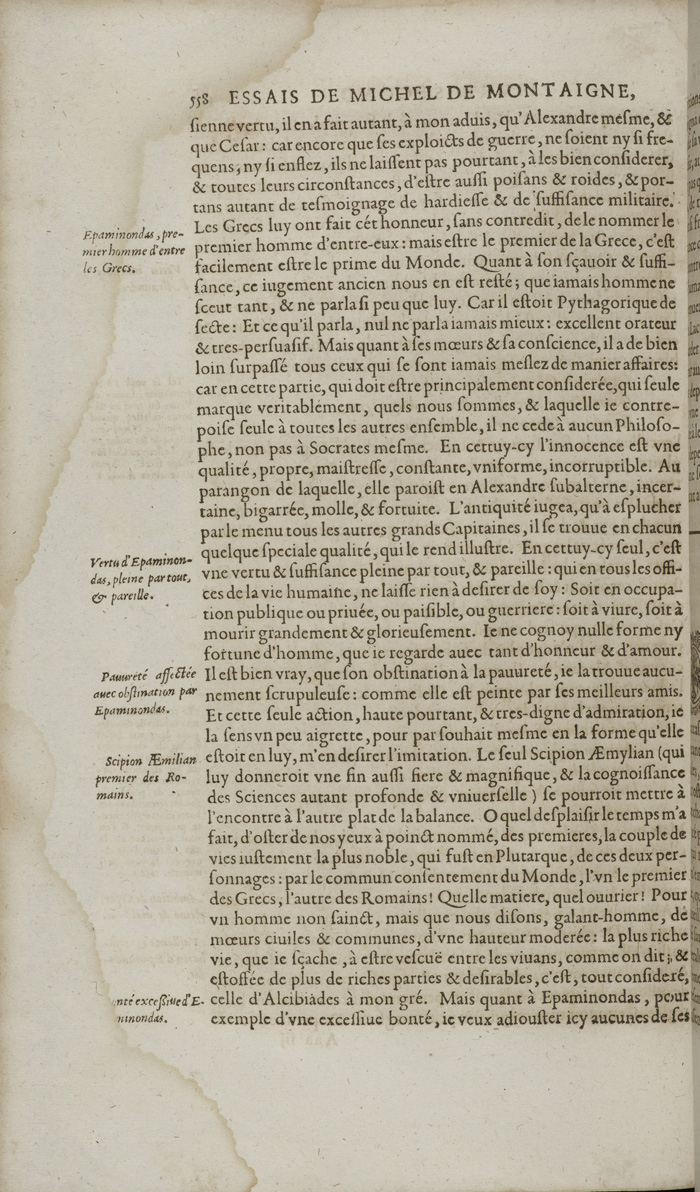 558 ESSAIS DE MICHEL DE MONTAIGNE,
ſienne vertu, il en a fait autant, à mon aduis, qu'Alexandre meſme, &
que Ceſar: car encore que ſes exploicts de guerre, ne ſoient ny ſi fre-
quens, ny ſi enflez, ils ne laiſſent pas pourtant, à les bien conſiderer,
& toutes leurs circonſtances, d'eſtre auſſi poiſans & roides, & por-
tans autant de teſmoignage de hardieſſe & de ſuffiſance militaire.
Les Grecs luy ont fait cét honneur, ſans contredit, de le nommer le
premier homme d'entre-eux: mais eſtre le premier de la Grece, c'eſt
facilement eſtre le prime du Monde. Quant à ſon ſçauoir & ſuffi-
ſance, ce iugement ancien nous en eſt reſté; que iamais homme ne
ſceut tant, & ne parla ſi peu que luy. Car il eſtoit Pythagorique de
ſecte: Et ce qu'il parla, nul ne parla iamais mieux: excellent orateur
& tres-perſuaſif. Mais quant à ſes mœurs & ſa conſcience, il a de bien
loin ſurpaſſé tous ceux qui ſe ſont iamais meſlez de manier affaires:
car en cette partie, qui doit eſtre principalement conſiderée, qui ſeule
marque veritablement, quels nous ſommes, & laquelle ie contre-
poiſe ſeule à toutes les autres enſemble, il ne cede à aucun Philoſo-
phe, non pas à Socrates meſme. En cettuy-cy l'innocence eſt vne
qualité, propre, maiſtreſſe, conſtante, vniforme, incorruptible. Au
parangon de laquelle, elle paroiſt en Alexandre ſubalterne, incer-
taine, bigarrée, molle, & fortuite. L'antiquité iugea, qu'à eſplucher
par le menu tous les autres grands Capitaines, il ſe trouue en chacun
quelque ſpeciale qualité, qui le rend illuſtre. En cettuy-cy ſeul, c'eſt
vne vertu & ſuffiſance pleine par tout, & pareille: qui en tous les offi-
ces de la vie humaine, ne laiſſe rien à deſirer de ſoy: Soit en occupa-
tion publique ou priuée, ou paiſible, ou guerriere: ſoit à viure, ſoit à
mourir grandement & glorieuſement. Ie ne cognoy nulle forme ny
fortune d'homme, que ie regarde auec tant d'honneur & d'amour.
Il eſt bien vray, que ſon obſtination à la pauureté, ie la trouue aucu-
nement ſcrupuleuſe: comme elle eſt peinte par ſes meilleurs amis.
Et cette ſeule action, haute pourtant, & tres-digne d'admiration, ie
la ſens vn peu aigrette, pour par ſouhait meſme en la forme qu'elle
eſtoit en luy, m'en deſirer l'imitation. Le ſeul Scipion Æmylian (qui
luy donneroit vne fin auſſi fiere & magnifique, & la cognoiſſance
des Sciences autant profonde & vniuerſelle) ſe pourroit mettre à
l'encontre à l'autre plat de la balance. O quel deſplaiſir le temps m'a
fait, d'oſter de nos yeux à poinct nommé, des premieres, la couple de
vies iuſtement la plus noble, qui fuſt en Plutarque, de ces deux per-
ſonnages: par le commun conſentement du Monde, l'vn le premier
des Grecs, l'autre des Romains! Quelle matiere, quel ouurier! Pour
vn homme non ſainct, mais que nous diſons, galant-homme, de
mœurs ciuiles & communes, d'vne hauteur moderée: la plus riche
vie, que ie ſçache, à eſtre veſcuë entre les viuans, comme on dit; &
eſtoffée de plus de riches parties & deſirables, c'eſt, tout conſideré,
celle d'Alcibiades à mon gré. Mais quant à Epaminondas, pour
exemple d'vne exceſſiue bonté, ie veux adiouſter icy aucunes de ſes
Epaminondas, pre-
mier homme d'entre
les Grecs.
Vertu d'Epaminon-
das, pleine par tout,
& pareille.
Pauureté affectée
auec obſtination par
Epaminondas.
Scipion Æmilian
premier des Ro-
mains.
nté exceſſiue d'E-
minondas.